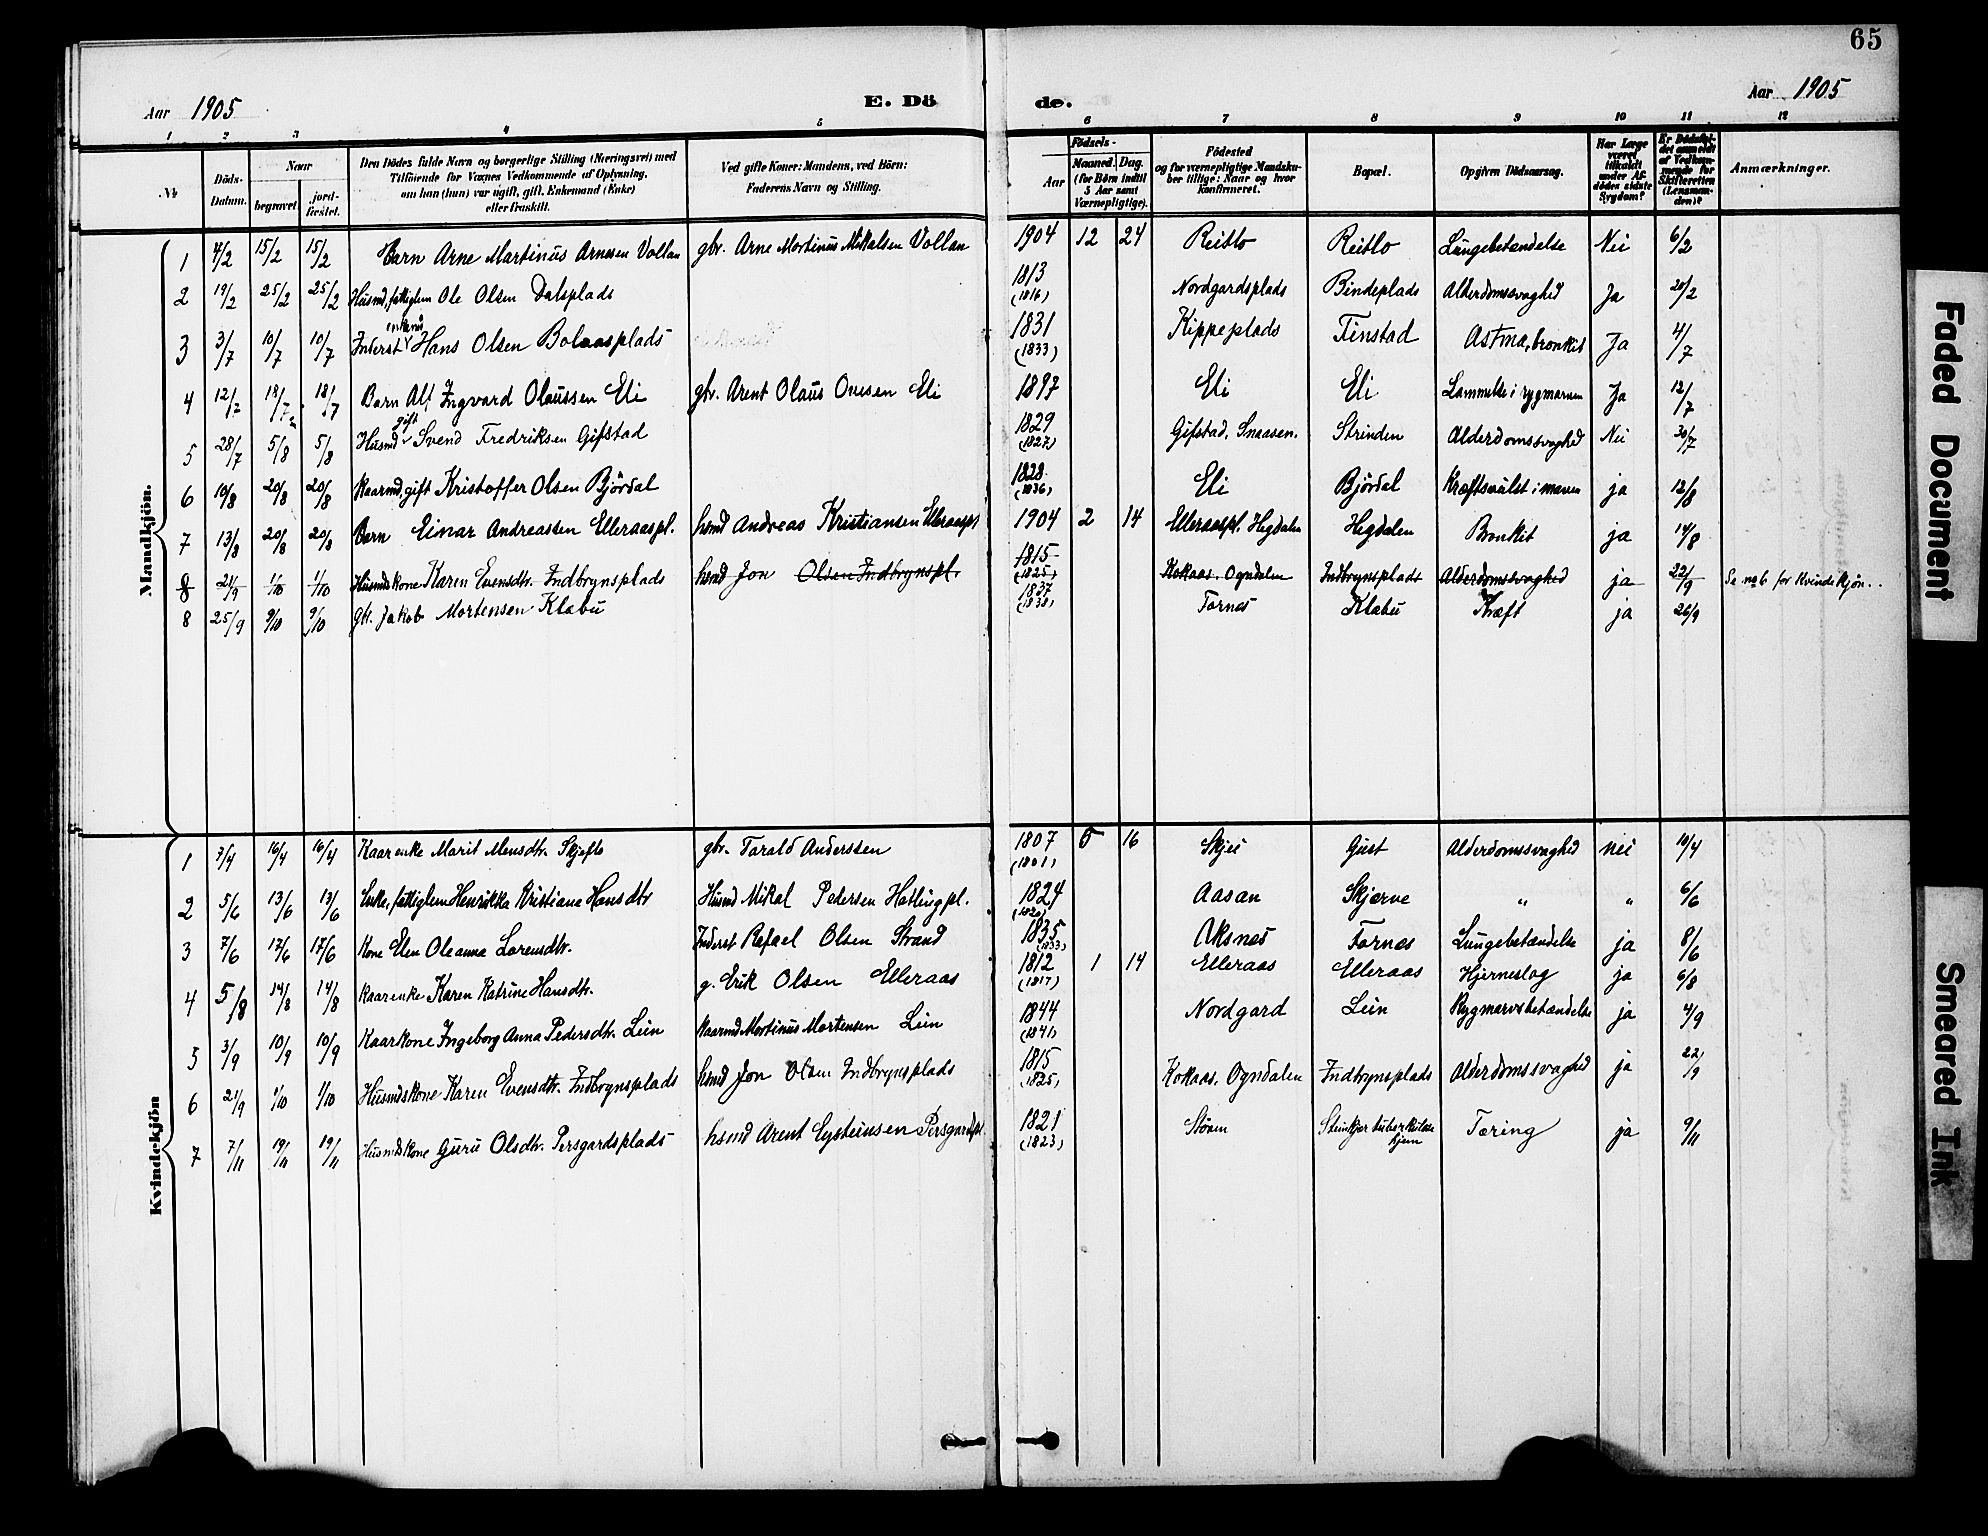 65
Aar 1905 E. Dö de. Aar 1905
1 2 3 4 5 6 7 8 9 10 11 12
No. Döds-Datum. Naar begravet. jordfæstet. Den Dödes fulde Navn og borgerlige Stilling (Næringsvei) med Tilföiende for Voxnes Vedkommende af Oplysning, om han (hun) var ugift, gift, Enkemand (Enke) eller fraskilt. Ved gifte Koner: Mandens, ved Börn: Faderens Navn og Stilling. Födsels- Aar Maaned. Dag. (for Börn indtil 5 Aar samt Værnepligtige). Födested og for værnepligtige Mandskaber tillige: Naar og hvor konfirmeret. Bopæl. Opgiven Dödsaarsag. Har Læge været tilkaldt under Afdödes sidste Sygdom? Er Dödsfaldet anmeldt af Vedkommende for Skifteretten (Lensmanden)? Anmærkninger.
Mandkjön.
1 4/2 15/2 15/2 Barn Arne Martinus Arnesen Vollan gbr. Arne Mortinus Mikalsen Vollan 1904 12 24 Reitlo Reitlo Lungebetændelse Nei 6/2
2 19/2 25/2 25/2 Husmd, fattiglem Ole Olsen Dalsplads 1813 (1816) Nordgardsplads Bindeplads Alderdomssvaghed Ja 20/2
3 3/7 10/7 10/7 Inderst Hans Olsen Bolaasplads 1831 (1833) Kippeplads Finstad Astma, bronkit Ja 4/7
4 12/7 18/7 18/7 Barn Alf Ingvard Olaussen Eli gbr. Arent Olaus Ovesen Eli 1897 Eli Eli Lammelse i rygmarven Ja 12/7
5 28/7 5/8 5/8 Husmd gift Svend Fredriksen Gifstad 1829 (1827) Gifstad, Snaasen. Strinden Alderdomssvaghed Nei 30/7
6 10/8 20/8 20/8 Kaarmd, gift Kristoffer Olsen Björdal 1828 (1836) Eli Björdal Kræftsvulst i maven ja 12/8
7 13/8 20/8 20/8 Barn Einar Andreassen Elleraaspl. hsmd Andreas Kristiansen Elleraaspl 1904 2 14 Elleraaspl. Hegdalen Hegdalen Bronkit ja 14/8
8 21/9 1/10 1/10 Husmdskone Karen Evensdtr. Indbrynsplads hsmd Jon Olsen Indbrynspl. 1815 (1825) Kokaas. Ogndalen Indbrynsplads Alderdomssvaghed ja 22/9 Se no 6 for Kvindekjön.
8 25/9 9/10 9/10 gt. Jakob Mortensen Klæbu 1837 (1838) Fornes Klæbu Kræft ja 26/9
Kvindekjön
1 3/4 16/4 16/4 Kaarenke Marit Monsdtr. Skjefte gbr. Tarald Anderssen 1807 (1801) 5 16 Skjei Gust Alderdomssvaghed nei 10/4
2 5/6 13/6 13/6 Enke, fattiglem Henrikka Kristiane Hansdtr Husmd Mikal Pedersen Hatlingpl. 1824 Aasan Skjerve „ „ 6/6
3 7/6 17/6 17/6 Kone Elen Oleanna Lorensdtr. Inderst Rafael Olsen Strand 1835 (1833) Aksnes Fornes Lungebetændelse ja 8/6
4 5/8 14/8 14/8 Kaarenke Karen Katrine Hansdtr. g. Erik Olsen Elleraas 1812 (1817) 1 14 Elleraas Elleraas Hjerneslag ja 6/8
5 3/9 10/9 10/9 Kaarkone Ingeborg Anna Pedersdtr. Lein Kaarmd Mortinus Mortensen Lein 1844 (1841) Nordgard Lein Rygmarvsbetændelse ja 4/9
6 21/9 1/10 1/10 Husmdskone Karen Evensdtr. Indbrynsplads hsmd Jon Olsen Indbrynsplads 1815 (1825) Kokaas, Ogndalen Indbrynsplads Alderdomssvaghed ja 22/9
7 7/11 19/11 19/11 Husmdskone Guru Olsdtr. Persgardsplads hsmd Arent Eysteinsen Persgardspl. 1821 (1823) Stöen Steinkjer tuberkulosehjem Tæring ja 9/11
Faded Document
Smeared Ink